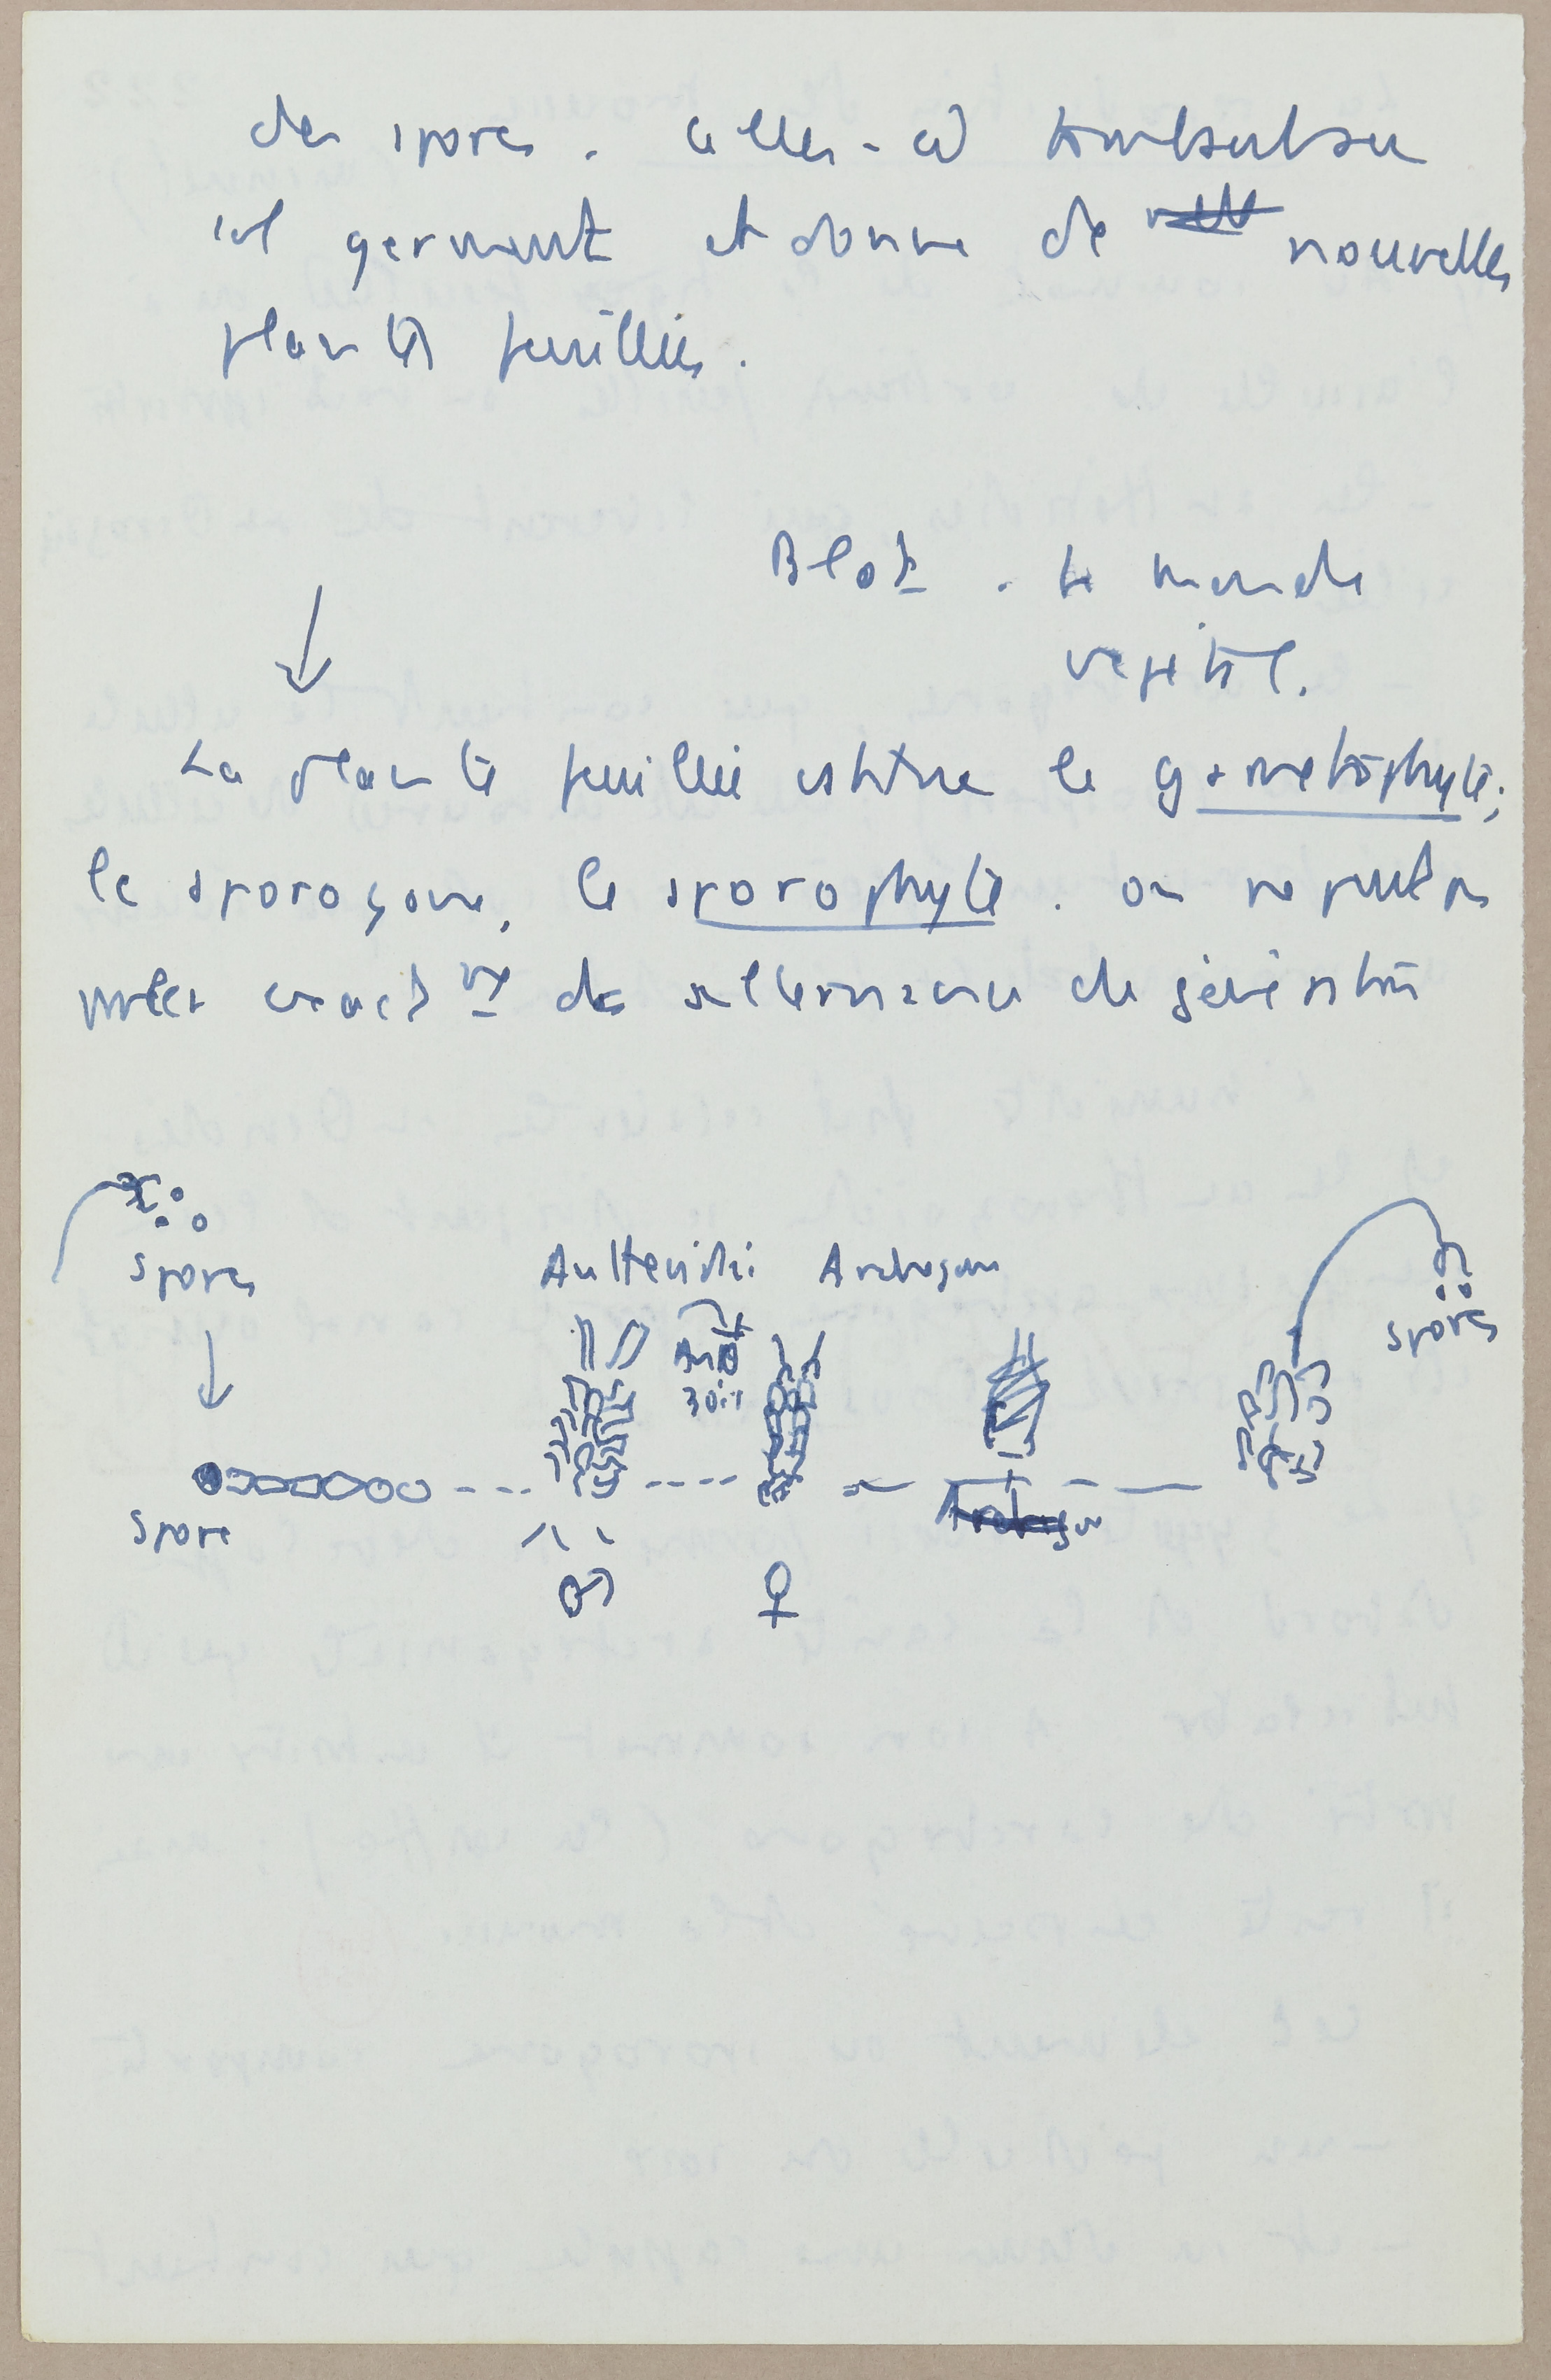 des spores. Celles-ci tombent sur
sol germent et donne de nouvelles
plantes feuillées.
Blot. Le monde
végétal.
La plante feuillée est le gamétophyte;
le sporogone, le sporophyte. on ne peut pas
parler exact mt de alternance de génération
spores
Anthéridie Archégone
spores
Anthé
zoïd
spore
♂ ♀